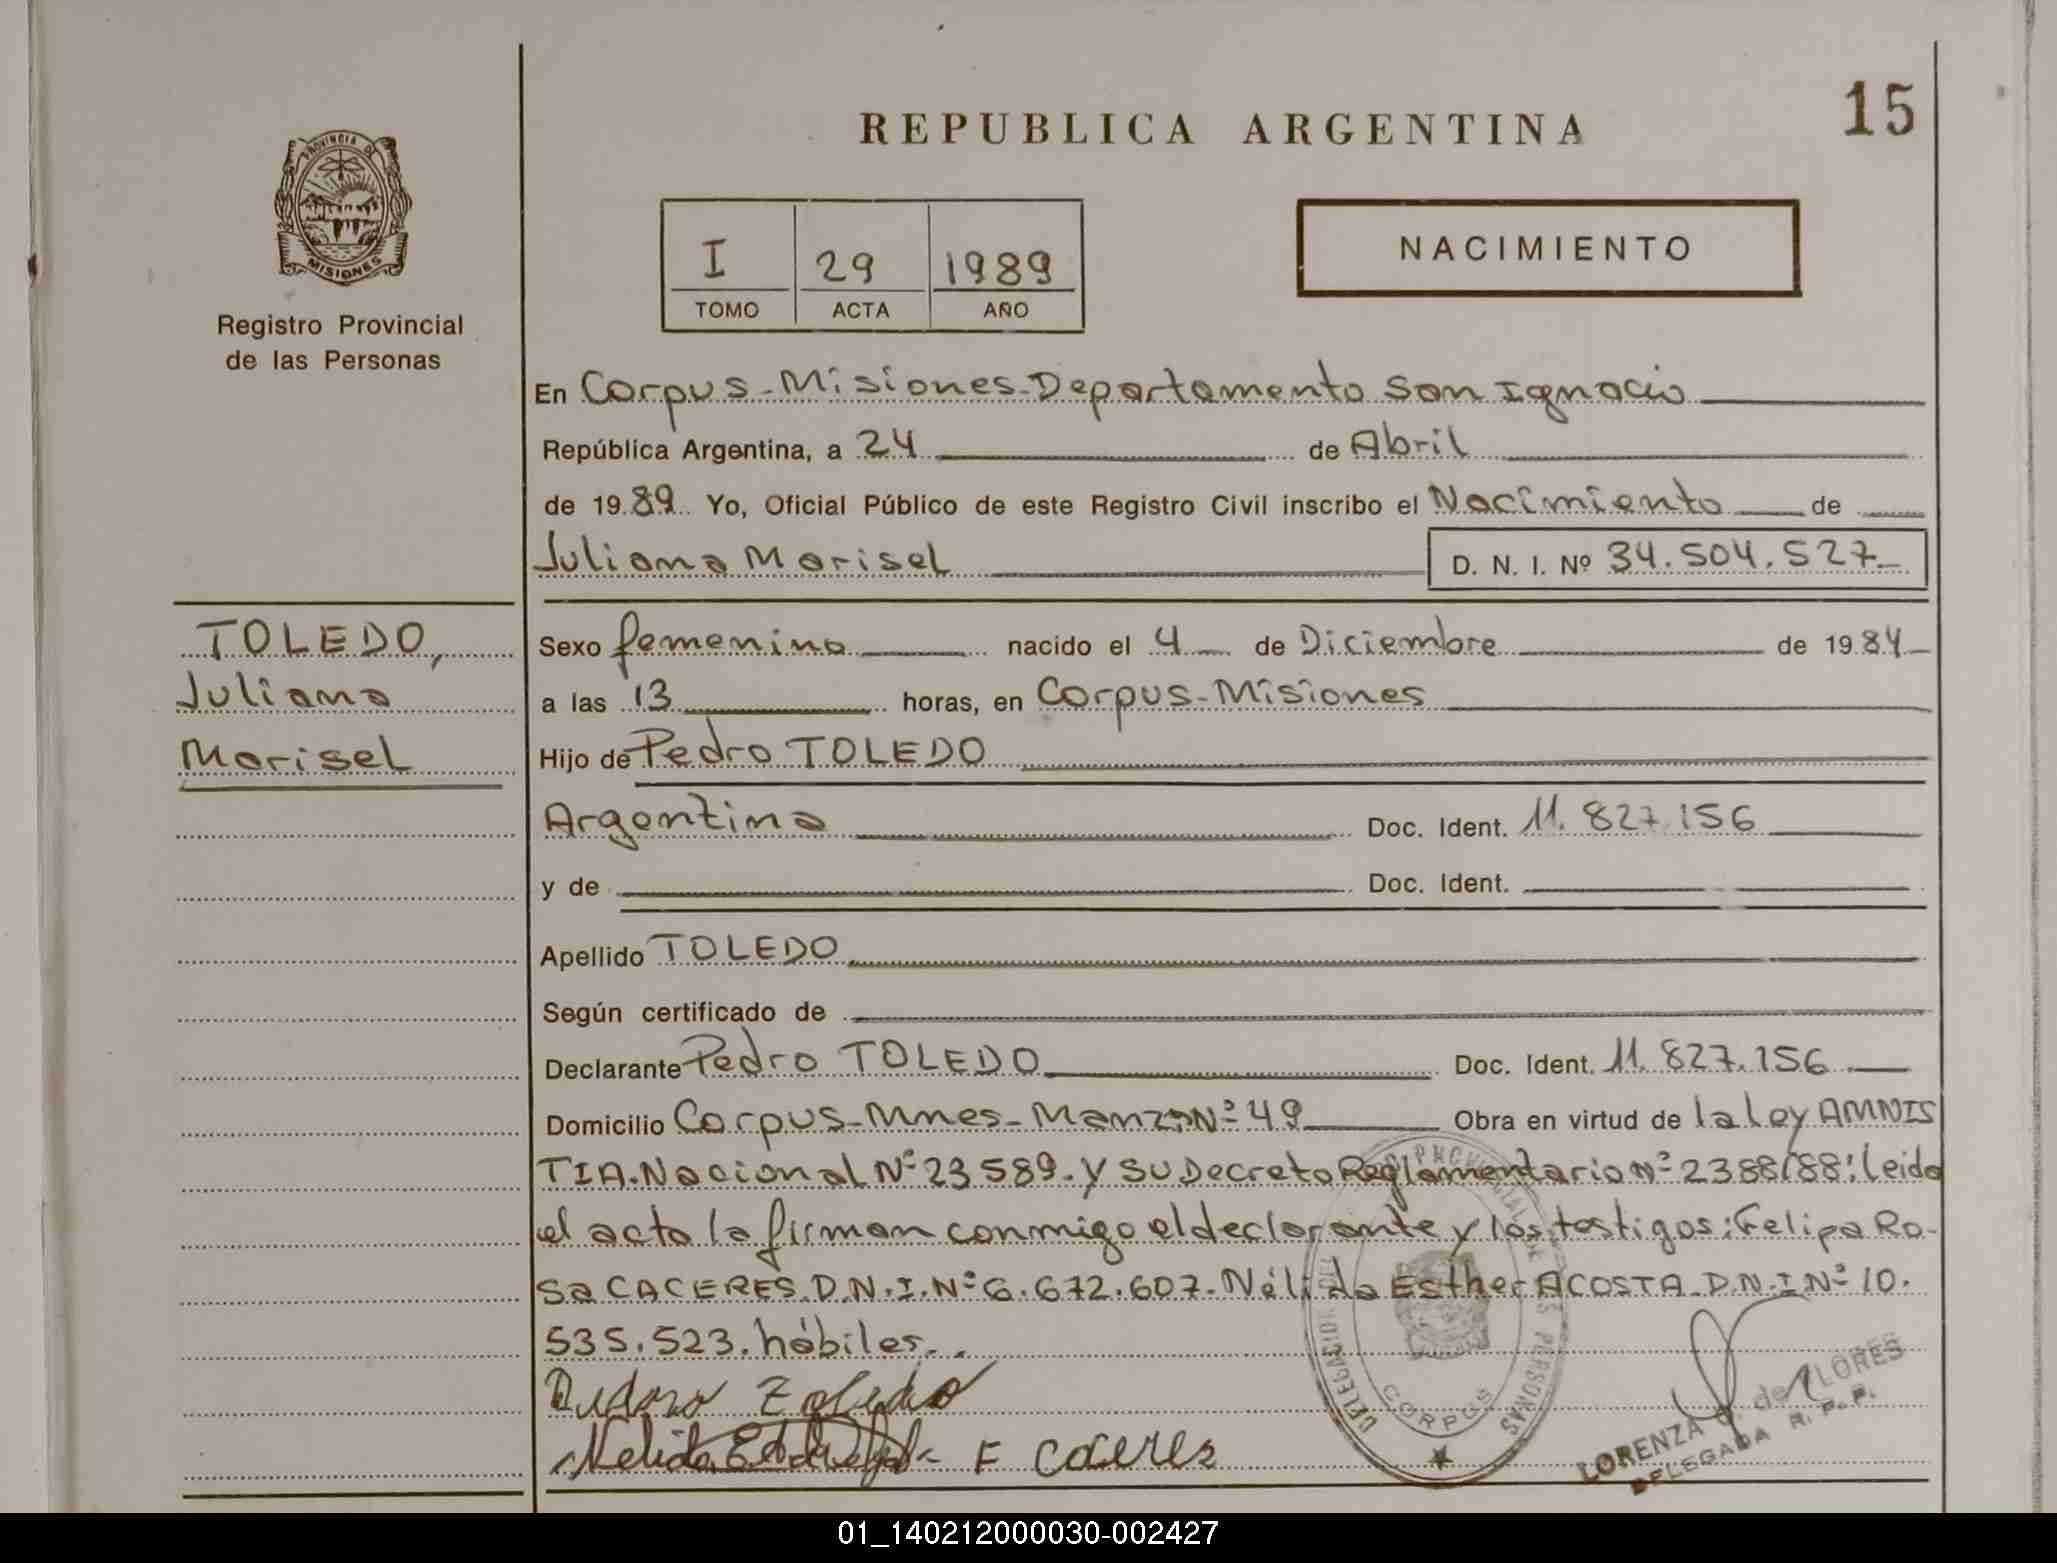 PROVINCIA DE
MISIONES
Registro Provincial
de las Personas
TOLEDO,
Juliana
Marisel
REPUBLICA ARGENTINA
15
I 29 1989
TOMO ACTA AÑO
NACIMIENTO
En Corpus-Misiones-Departamento San Ignacio
República Argentina, a 24 de Abril
de 1989 Yo, Oficial Público de este Registro Civil inscribo el Nacimiento de
Juliana Marisel D. N. I. Nº 34.504.527
Sexo femenino nacido el 4 de Diciembre de 1984
a las 13 horas, en Corpus-Misiones
Hijo de Pedro TOLEDO
Argentina Doc. Ident. 11.827.156
y de Doc. Ident.
Apellido TOLEDO
Según certificado de
Declarante Pedro TOLEDO Doc. Ident. 11.827.156
Domicilio Corpus-Mnes-Manz:Nº 49 Obra en virtud de la ley AMNIS
TIA.Nacional Nº 23589.y su Decreto Reglamentario Nº 2388/88: leida
el acta la firman conmigo el declarante y los testigos: Felipa Ro-
sa CACERES.D.N.I.Nº 6.672.607-Nélida Esther ACOSTA-D.N.I Nº 10.
535.523.hábiles.
Toledo
Nelida F Caceres
DELEGACION DEL PROVINCIAL DE LAS PERSONAS
CORPUS
LORENZA de FLORES
DELEGADA R. P. P.
01_140212000030-002427